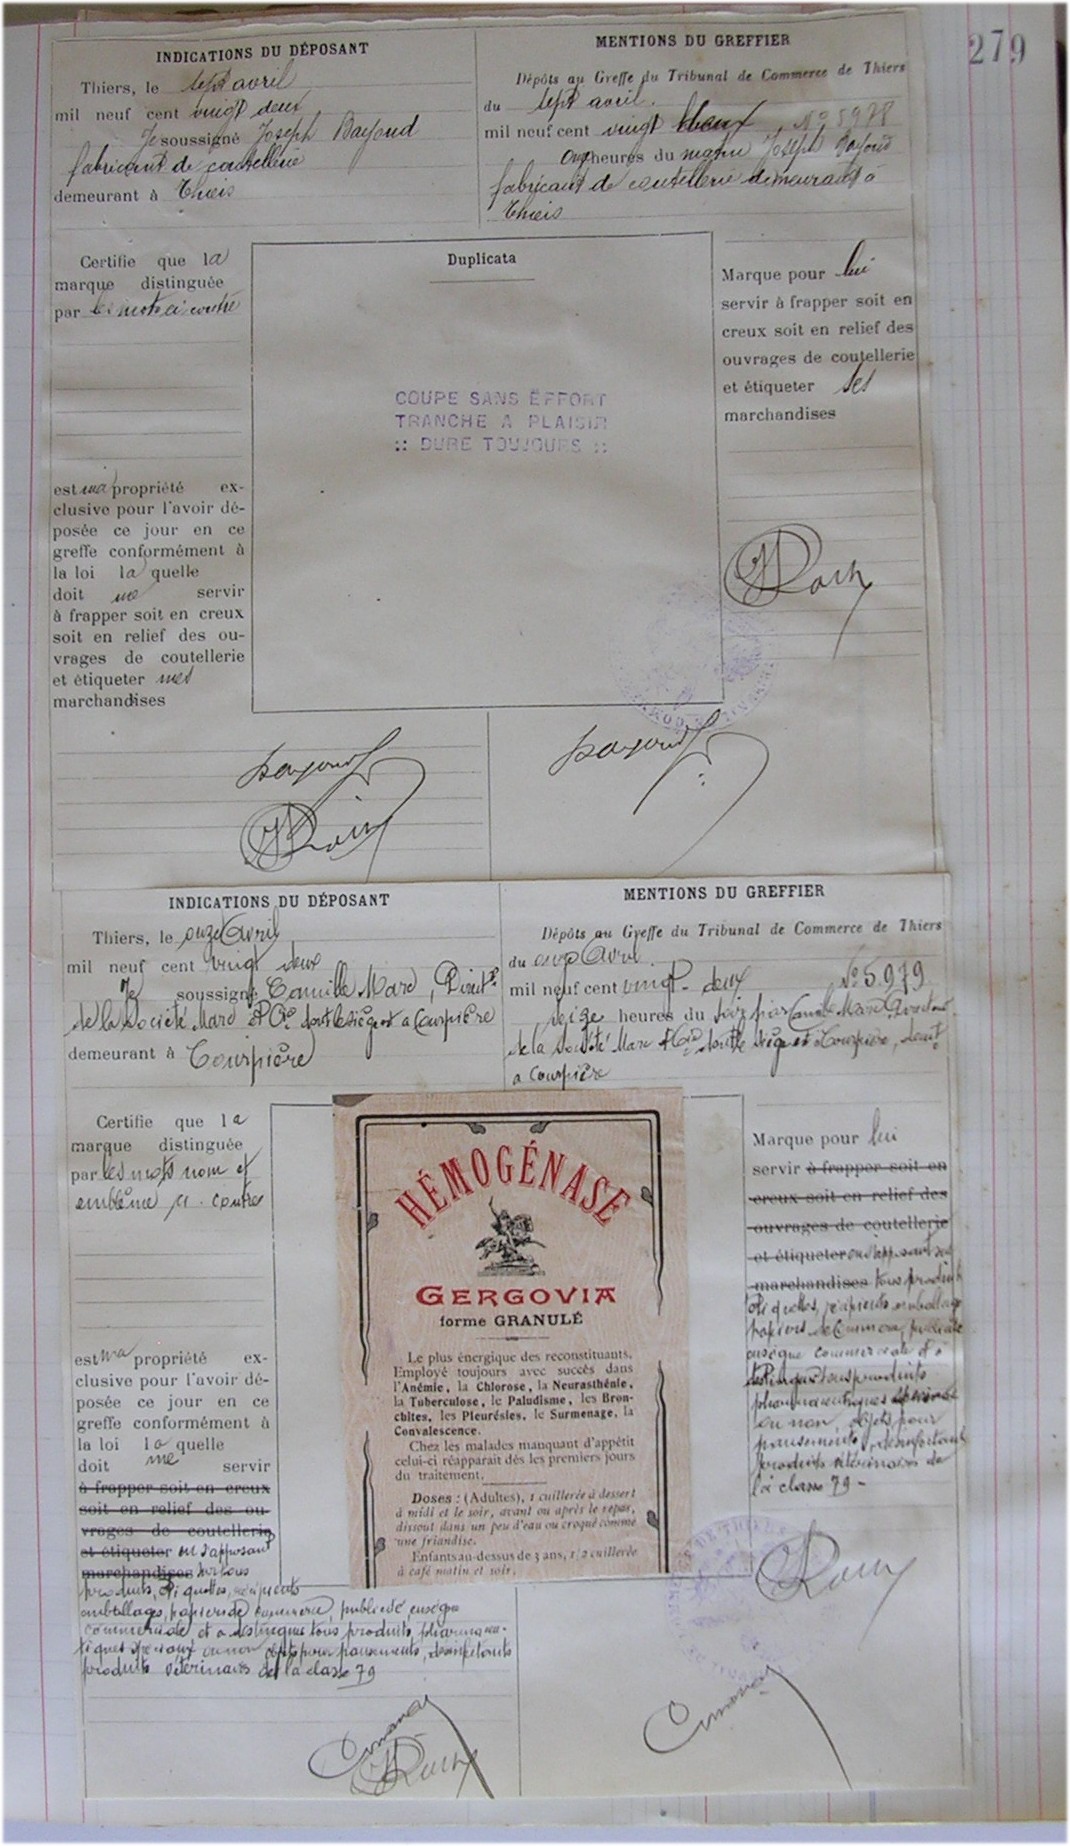 279
INDICATIONS DU DÉPOSANT
Thiers, le sept avril
mil neuf cent vingt deux
Je soussigné Joseph Bayoud
fabricant de coutellerie
demeurant à Thiers
MENTIONS DU GREFFIER
Dépôts au Greffe du Tribunal de Commerce de Thiers
du sept avril.
mil neuf cent vingt deux No 5978
onze heures du matin Joseph Bayoud
fabricant de coutellerie demeurant à
Thiers
Certifie que la
marque distinguée
par les mots ci contre
est ma propriété ex-
clusive pour l'avoir dé-
posée ce jour en ce
greffe conformément à
la loi la quelle
doit me servir
à frapper soit en creux
soit en relief des ou-
vrages de coutellerie
et étiqueter mes
marchandises
Duplicata
COUPE SANS EFFORT
TRANCHE A PLAISIR
:: DURE TOUJOURS ::
Marque pour lui
servir à frapper soit en
creux soit en relief des
ouvrages de coutellerie
et étiqueter ses
marchandises
INDICATIONS DU DÉPOSANT
Thiers, le onze Avril
mil neuf cent vingt deux
Je soussigné Camille Marc, Direct
de la Société Marc et Cie dont le siège est a Courpière
demeurant à Courpière
MENTIONS DU GREFFIER
Dépôts au Greffe du Tribunal de Commerce de Thiers
du onze Avril
mil neuf cent vingt-deux No 5.979
seize heures du soir par Camille Marc
de la Société Marc et Cie dont le siège est à Courpière, demt
a Courpière
Certifie que la
marque distinguée
par les mots nom et
emblème ci-contre
est ma propriété ex-
clusive pour l'avoir dé-
posée ce jour en ce
greffe conformément à
la loi la quelle
doit me servir
à frapper soit en creux
soit en relief des ou-
vrages de coutellerie
et étiqueter en s'apposant
marchandises sur tous
produits, étiquettes, récipients
emballages, papiers de commerce, publicité enseigne
commerciale et a distinguer tous produits pharmaceu-
tiques spéciaux ou non objets pour pansements, désinfectants
produits vétérinaires de la classe 79
HÉMOGÉNASE
GERGOVIA
forme GRANULÉ
Le plus énergique des reconstituants.
Employé toujours avec succès dans
l'Anémie, la Chlorose, la Neurasthénie,
la Tuberculose, le Paludisme, les Bron-
chites, les Pleurésies, le Surmenage, la
Convalescence.
Chez les malades manquant d'appétit
celui-ci réapparait dès les premiers jours
du traitement.
Doses : (Adultes), 1 cuillerée à dessert
à midi et le soir, avant ou après le repas,
dissout dans un peu d'eau ou croqué comme
une friandise.
Enfants au-dessus de 3 ans, 1/2 cuillerée
à café matin et soir.
Marque pour lui
servir à frapper soit en
creux soit en relief des
ouvrages de coutellerie
et étiqueter en s'apposant sur
marchandises tous produits
étiquettes, récipients emballages
papiers de commerce, publicité
enseigne commerciale et à
distinguer tous produits
pharmaceutiques
ou non objets pour
pansements, désinfectants
produits vétérinaires de
la classe 79 -